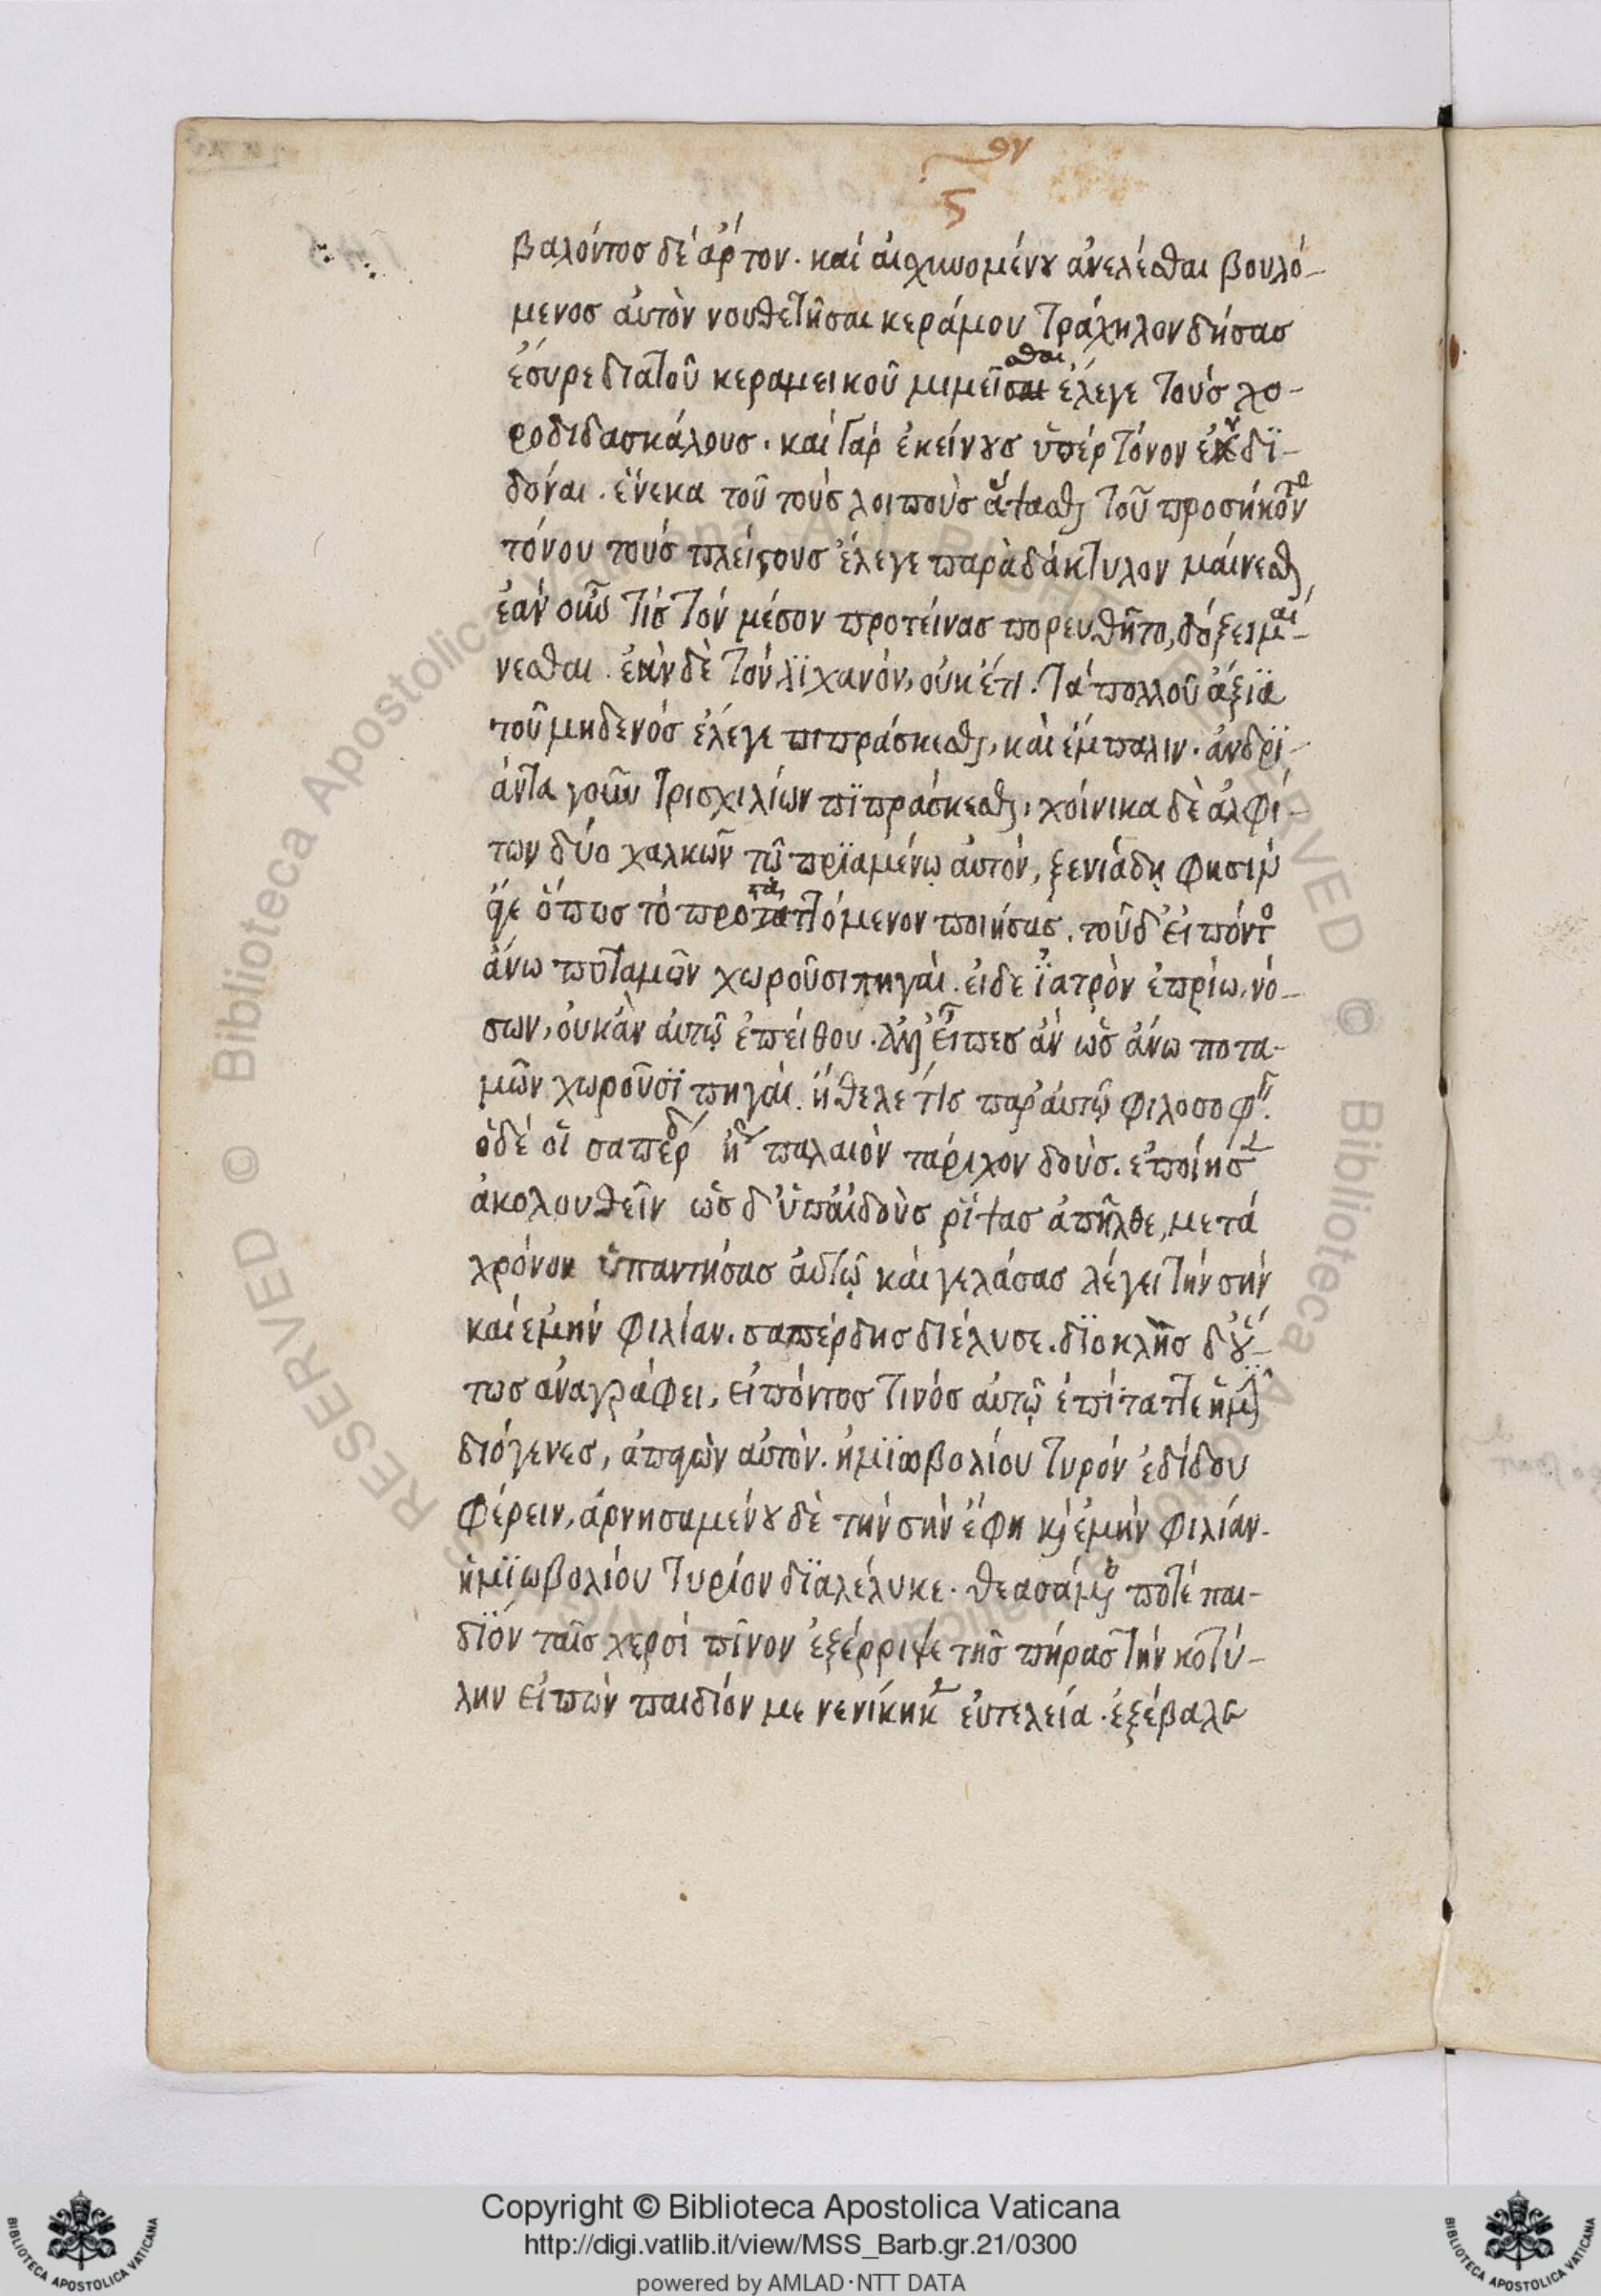 ϛ
βαλόντοσ δὲ ἄρτον. καὶ αἰσχυνομένου ἀνελέσθαι βουλό-
μενοσ αὐτὸν νουθετῆσαι κεράμου τράχηλον δήσασ
ἔσυρε διὰ τοῦ κεραμεικοῦ μιμεῖσθαι ἔλεγε τοὺσ χο-
ροδιδασκάλουσ. καὶ γὰρ ἐκείνουσ ὑπὲρ τόνον ἐνδϊ-
δόναι. ἕνεκα τοῦ τοὺσ λοιποὺσ ἅψασθαι τοῦ προσήκοντο
τόνου τοὺσ πλείστουσ ἔλεγε παρὰ δάκτυλον μαίνεσθαι
ἐὰν οὖν τὶσ τὸν μέσον προτείνασ πορευθῆτο, δόξει μαί-
νεσθαι. ἐὰν δὲ τὸν λϊχανόν, οὐκ έτι. τὰ πολλοῦ ἄξϊα
τοῦ μηδενόσ ἔλεγε πιπράσκεσθαι, καὶ ἔμπαλιν. ἀνδρϊ-
άντα γοῦν τρισχιλίων πϊπράσκεσθαι, χοίνικα δὲ ἀλφί-
των δύο χαλκῶν τῷ πρϊαμένῳ αὐτόν, ξενιάδῃ φησὶν
ὅπωσ τὸ προταττόμενον ποιήσασ. τοῦ δ' εἰπόντο
ἄνω ποταμῶν χωροῦσι πηγαὶ. εἰ δε ϊατρὸν ἐπρίω, νό-
σων, οὐκ ἂν αὐτῷ ἐπείθου. εἶπεσ ἂν ὡσ ἄνω ποτα-
μῶν χωροῦσϊ πηγαὶ. ἤθελε τὶσ παρ' αὐτῷ φιλοσοφεῖν.
ὁ δέ οἱ σαπέρδ ἢ παλαιὸν τάριχον δοὺσ. ἐποίησ
ἀκολουθεῖν ὡσ δ' ὑπ' αἰδοὺσ ρίψασ ἀπῆλθε, μετὰ
χρόνον ὑπαντήσασ αὐτῷ καὶ γελάσασ λέγει τὴν σὴν
καὶ εμὴν φιλίαν. σαπέρδησ διέλυσε. δϊοκλῆσ δ' οὕ-
τωσ ἀναγράφει, εἰπόντοσ τινόσ αὐτῷ ἐπίταττε ἡμῖν
διόγενεσ, ἀπαγὼν αὐτὸν. ἡμϊωβολίου τυρόν ἐδίδου
φέρειν, ἀρνησαμένου δὲ τὴν σὴν ἔφη κὶ ἐμὴν φιλίαν.
ἡμϊωβολίου τυρίον δϊαλέλυκε. θεασάμενοσ ποτὲ παι-
δϊόν ταῖσ χερσὶ πῖνον ἐξέρριψε τῆσ πήρασ τὴν κοτύ-
λην εἰπὼν παιδίόν με νενίκηκεν εὐτελεία. ἐξέβαλε
Copyright © Biblioteca Apostolica Vaticana
http://digi.vatlib.it/view/MSS_Barb.gr.21/0300
powered by AMLAD·NTT DATA